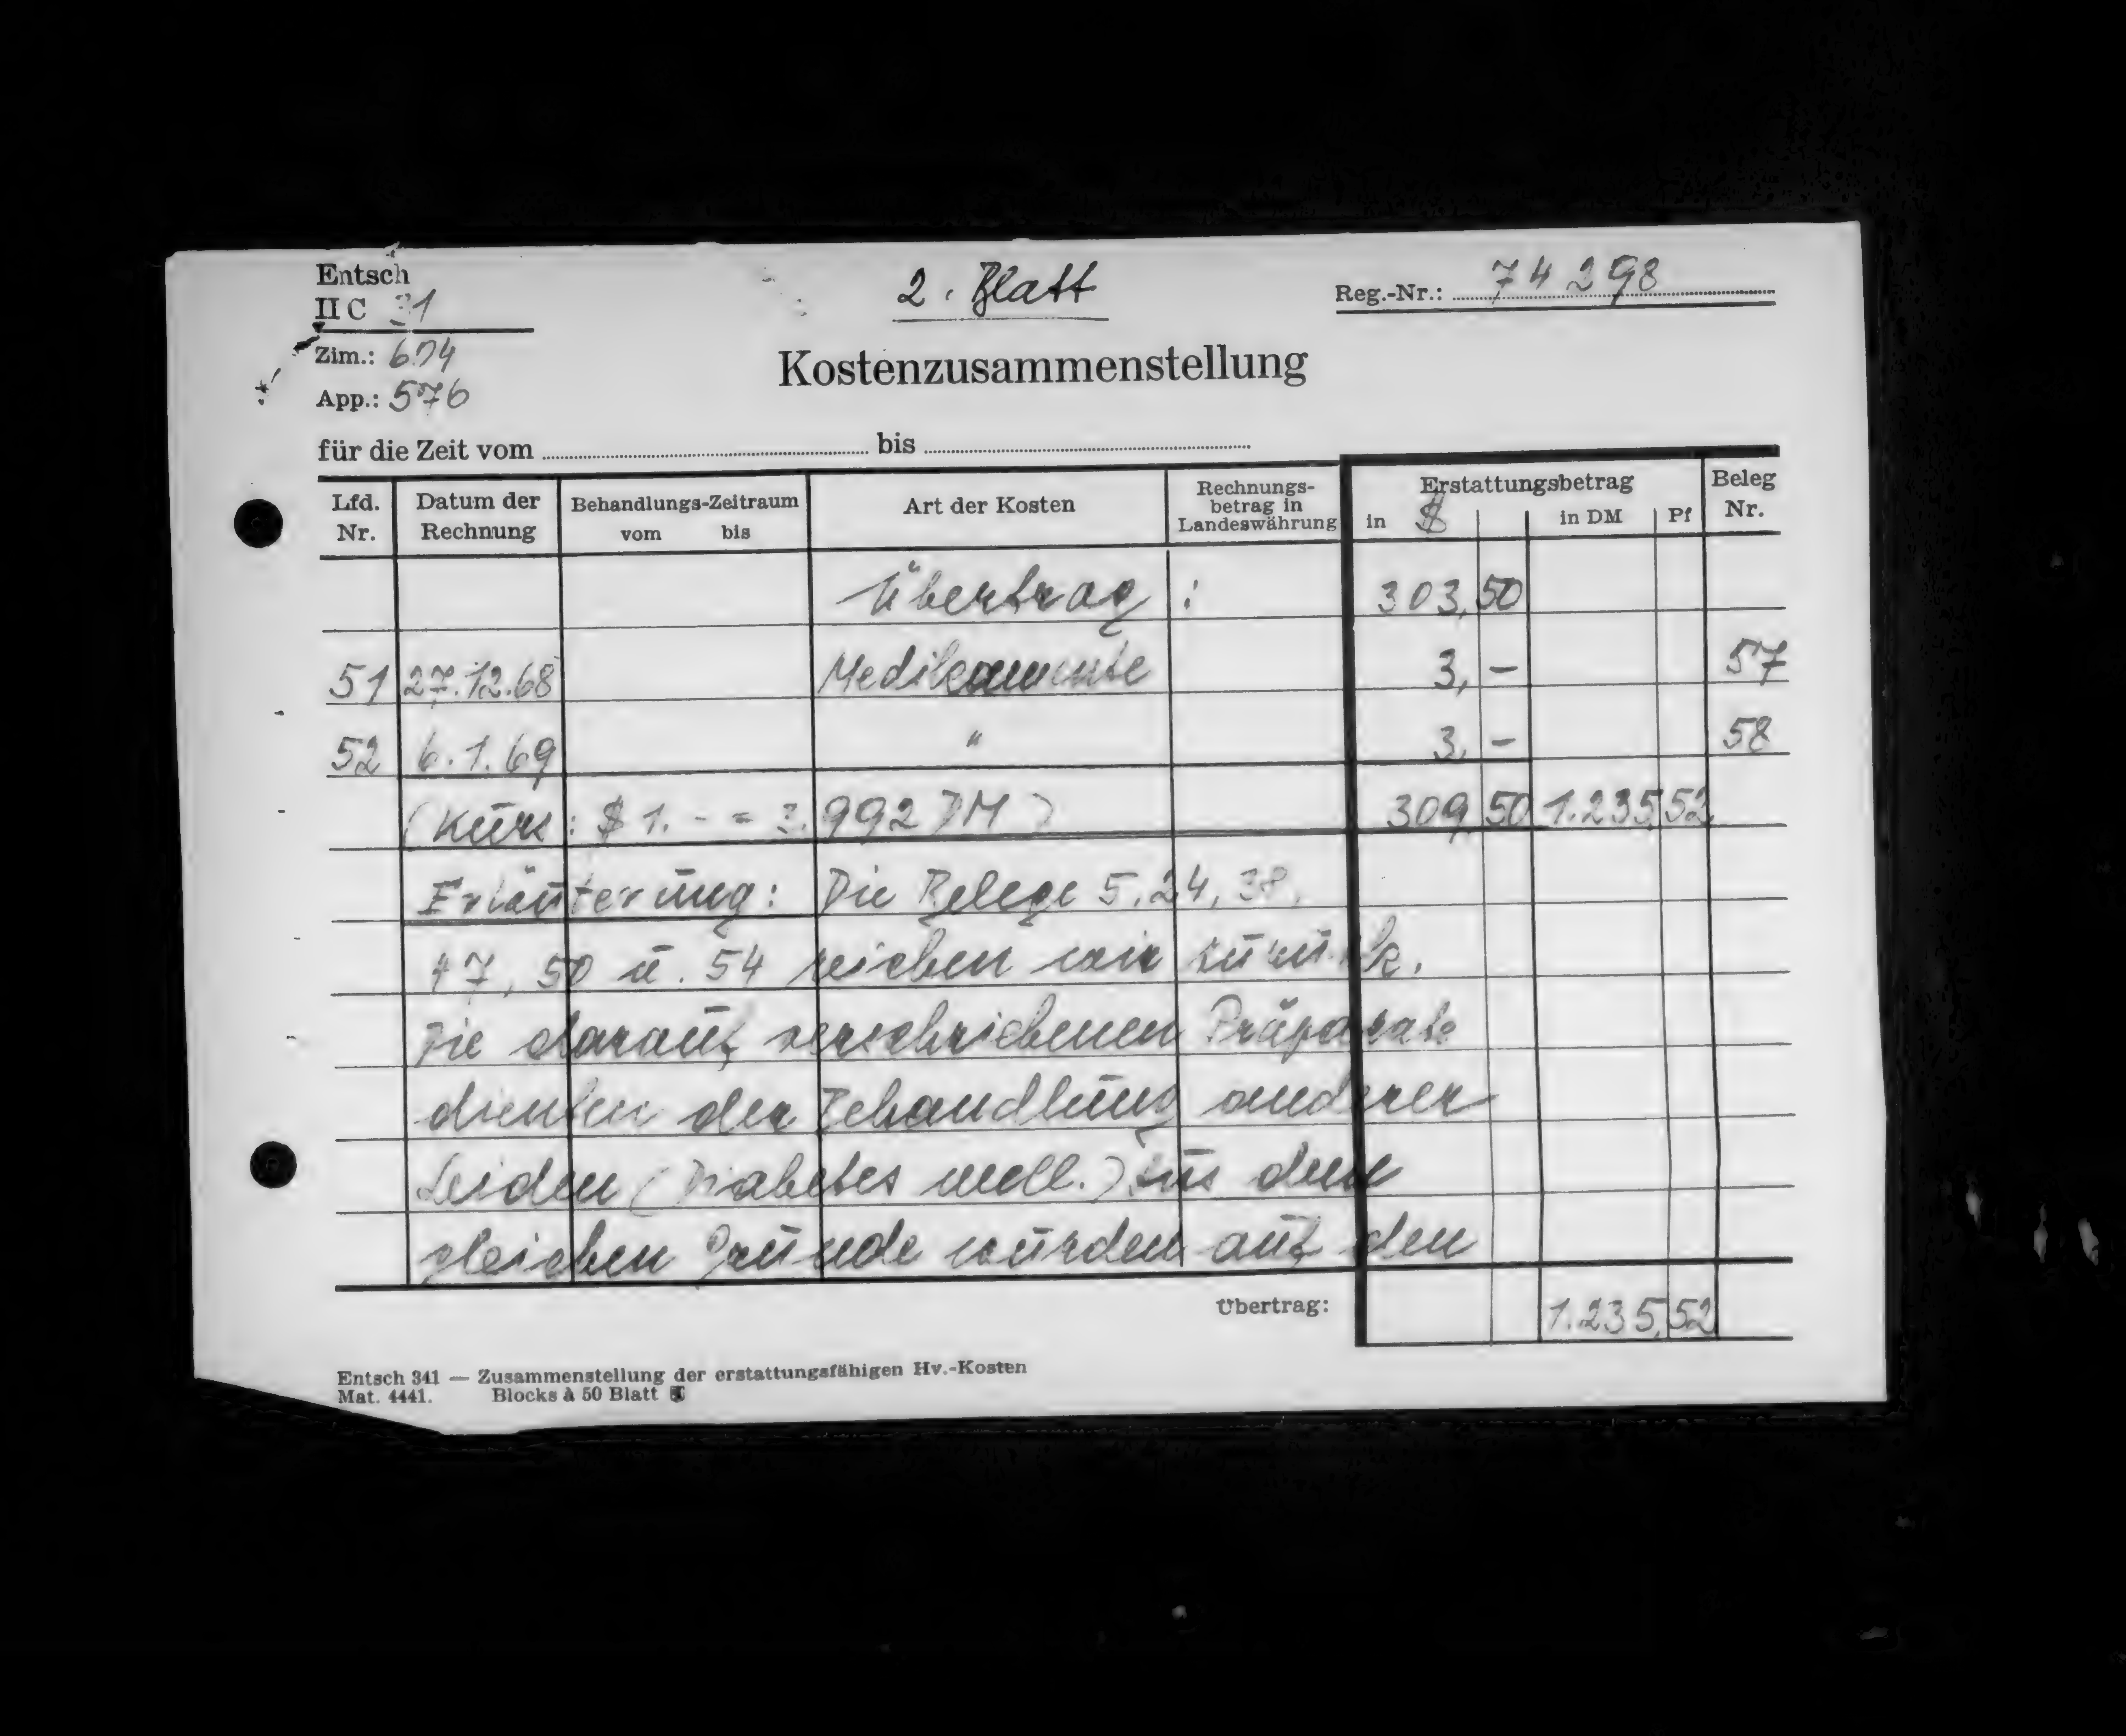 Entsch
II C 31
2. Blatt
Reg.-Nr.: 74298
Zim.: 614
App.: 576
Kostenzusammenstellung
für die Zeit vom bis
Lfd. Nr. Datum der Rechnung Behandlungs-Zeitraum vom bis Art der Kosten Rechnungs-betrag in Landeswährung Erstattungsbetrag in $ in DM Pf Beleg Nr.
Übertrag : 303,50
51 27.12.68 Medikamente 3,- 57
52 6.1.69 " 3,- 58
(Kurs: $ 1.- = 3.992 DM) 309,50 1.235,52
Erläuterung: Die Belege 5, 24, 38,
47, 50 u. 54 reichen wir zurück.
Die darauf verschriebenen Präparate
dienten der Behandlung anderer
Leiden (Diabetes mell.). Aus dem
gleichen Grunde wurden auf den
Übertrag: 1.235,52
Entsch 341 — Zusammenstellung der erstattungsfähigen Hv.-Kosten
Mat. 4441. Blocks à 50 Blatt